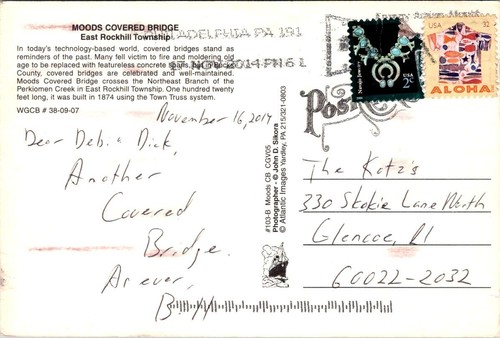 MOODS COVERED BRIDGE
East Rockhill Township
In today's technology-based world, covered bridges stand as
reminders of the past. Many fell victim to fire and moldering old
age to be replaced with featureless concrete spans, but in Bucks
County, covered bridges are celebrated and well-maintained.
Moods Covered Bridge crosses the Northeast Branch of the
Perkiomen Creek in East Rockhill Township. One hundred twenty
feet long, it was built in 1874 using the Town Truss system.
WGCB # 38-09-07
PHILADELPHIA PA 191
NOV 2014 PM 6 L
November 16, 2014
Dear Deb & Dick,
Another
Covered
Bridge.
As ever,
#103-B Moods CB CGV05
Photographer - © John D. Sikora
© Atlantic Images Yardley, PA 215/321-0603
Post
Navajo Jewelry
USA
2c
USA
32
ALOHA
The Katz's
330 Skokie Lane North
Glencoe, Il
60022-2032